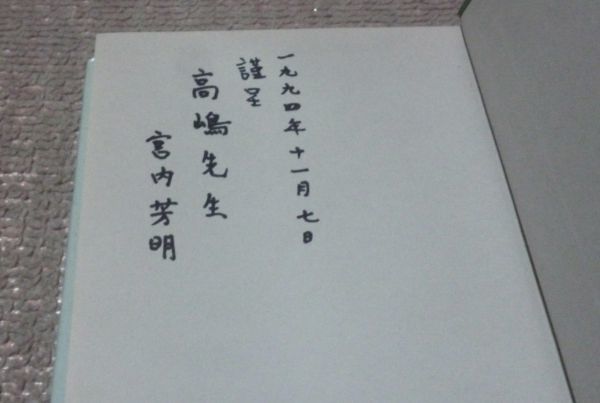 一九九四年十一月七日
謹呈
高嶋先生
宮内芳明